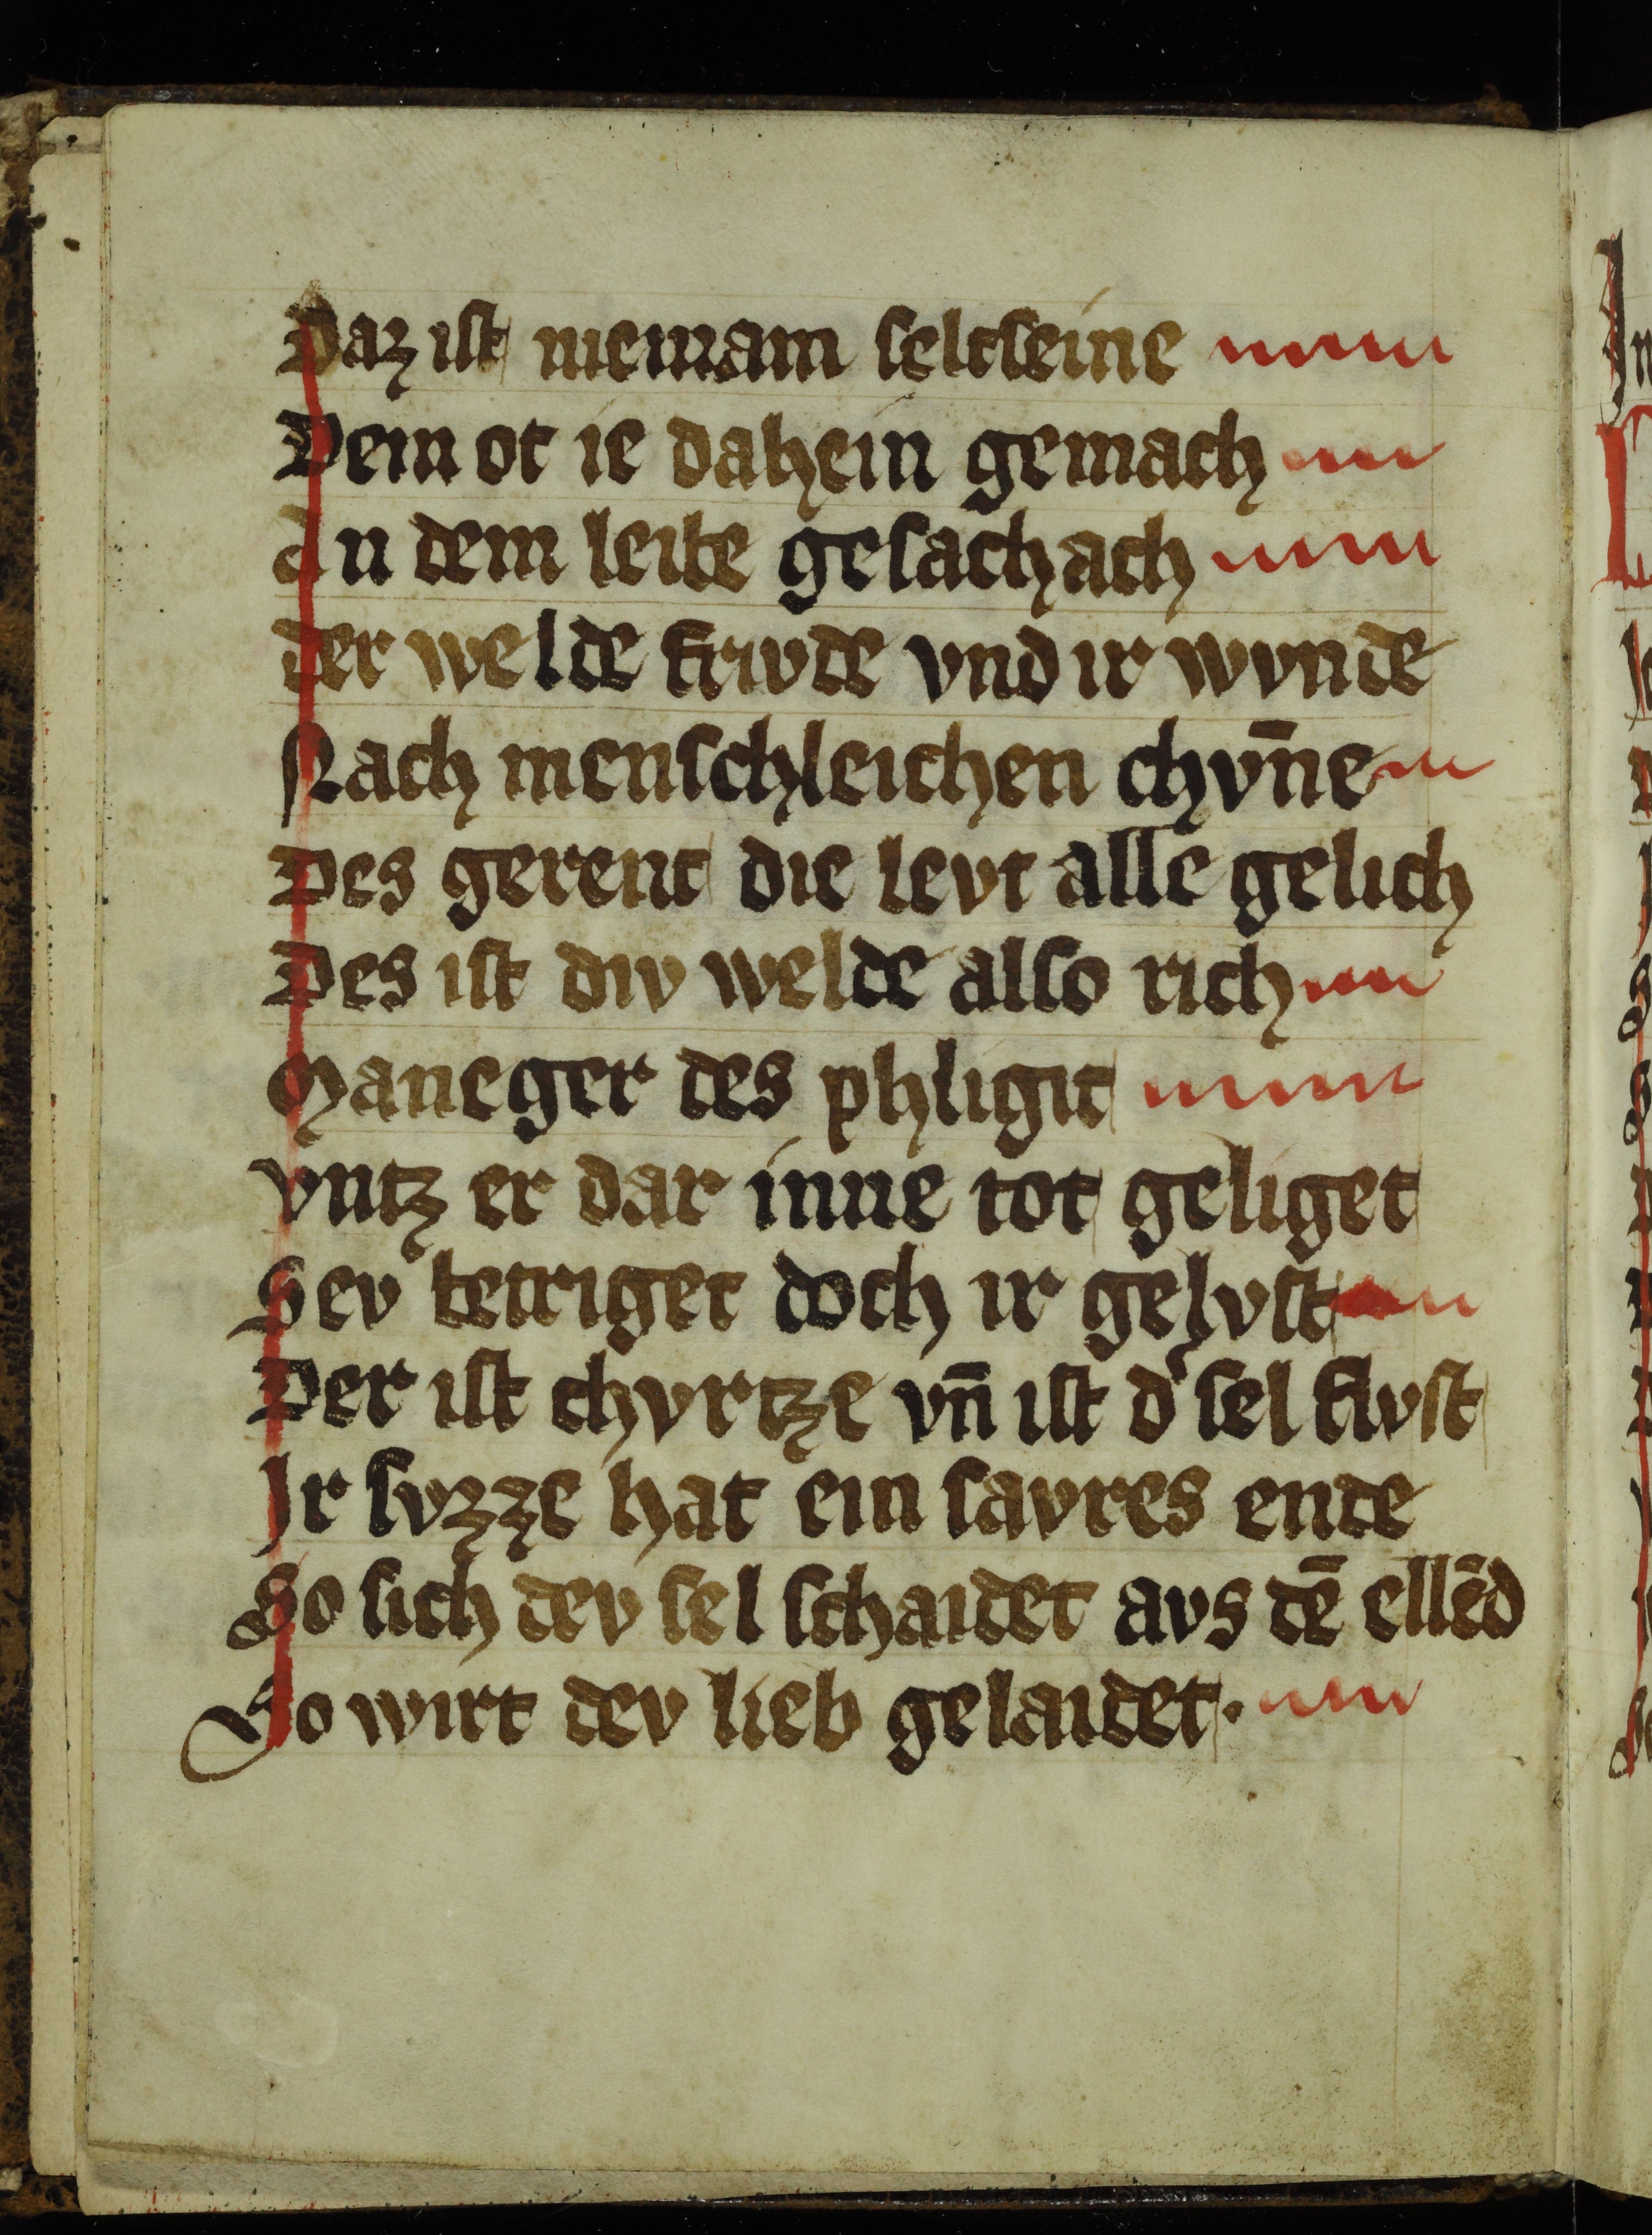 Daz ist niemam seltseine
Dem ot ie dahein gemach
An dem leibe gesachach
der welde frivde vnd ir wvnde
Nach menschleichen chvn̄e
Des gerent die levt alle gelich
Des ist div welde also rich
Maneger des phligit
vntz er dar inne tot geliget
Sev betriget doch ir gelvst
Der ist chvrtze vn̄ ist d' sel flvst
Ir svzze hat ein savres ende
So sich dev sel schaidet avs dē ellēd
So wirt dev lieb gelaidet.